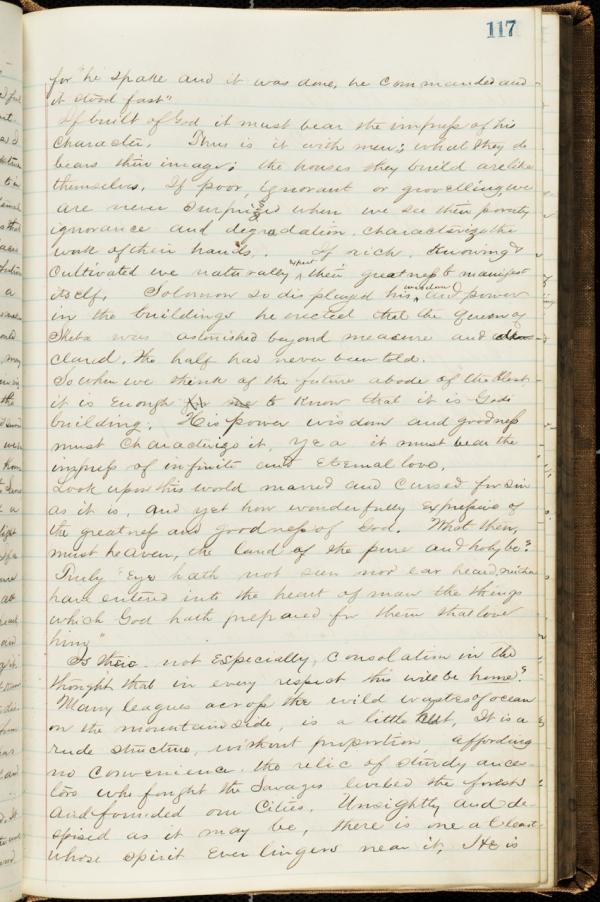 117
for "he spake and it was done, he commanded and
it stood fast"
If built of God it must bear the impress of his
character. Thus is it with men; what they do
bears their image; the houses they build are like
themselves. If poor, ignorant or grovelling we
are never surprised when we see their poverty
ignorance and degradation characterize the
work of their hands. If rich, knowing &
cultivated we naturally expect their greatness to manifest
itself. Solomon so displayed his wisdom and power
in the buildings he erected that the Queen of
Sheba was astonished beyond measure and de
clared, the half had never been told.
So when we think of the future abode of the blest
it is enough for me to know that it is Gods
building. His power wisdom and goodness
must characterize it, yea it must bear the
impress of infinite and Eternal love.
Look upon this world marred and cursed for sin
as it is, and yet how wonderfully expressive of
the greatness and goodness of God. What then,
must heaven, the land of the pure and holy be?
Truly "Eye hath not seen nor ear heard, neither
have entered into the heart of man the things
which God hath prepared for them that love
him"
Is there not especially, consolation in the
thought that in every respect this will be home?
Many leagues across the wild wastes of ocean
on the mountain side, is a little hut, It is a
rude structure, without proportion, affording
no convenience, the relic of sturdy ances-
tors who fought the Savages leveled the forests
and founded our Cities. Unsightly and de-
spised as it may be, there is one at least
whose spirit ever lingers near it, He is